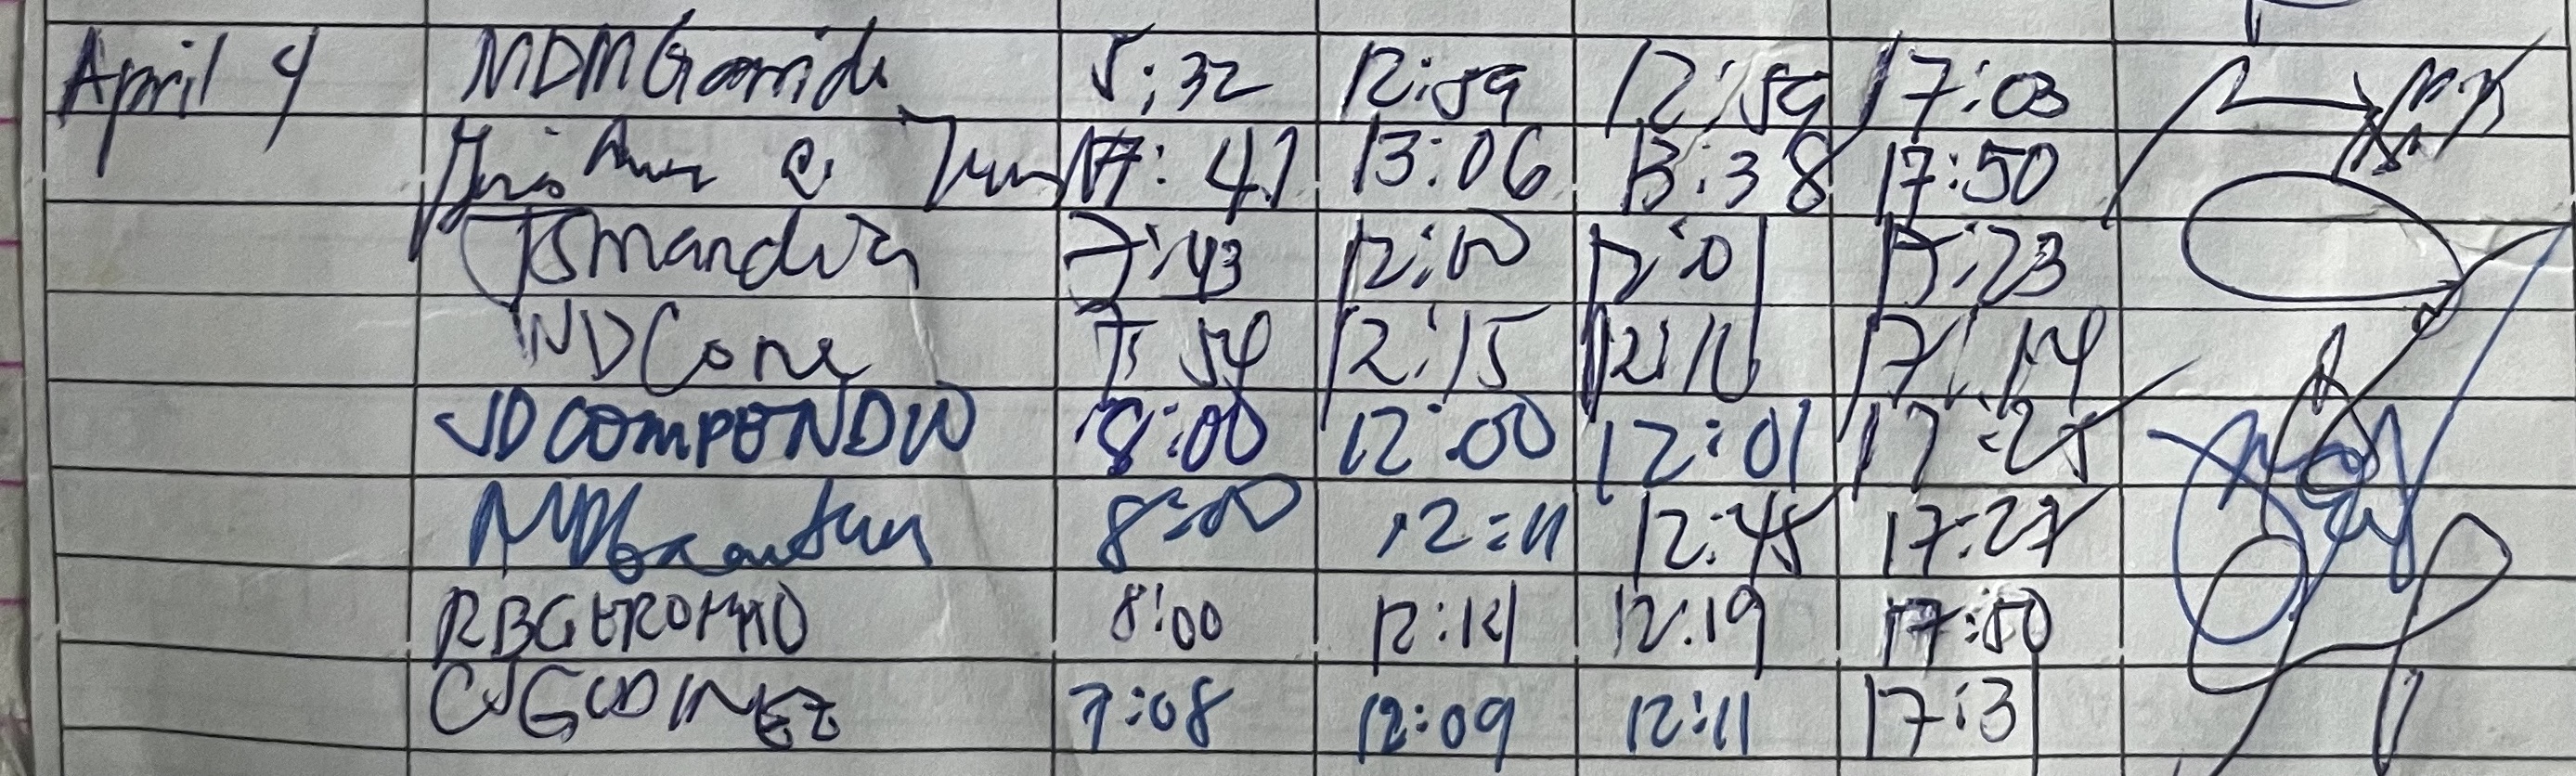 April 4 MDMGarrido 5:32 12:59 12:59 17:03
7:41 13:06 13:38 17:50
JSmandia 7:43 12:00 12:01 17:23
NDCone 7:54 12:15 12:16 17:14
JDCOMPENDIO 8:00 12:00 12:01 17:25
8:00 12:11 12:45 17:27
RBGERONIMO 8:00 12:14 12:19 17:50
CJGODINEZ 7:08 12:09 12:11 17:31